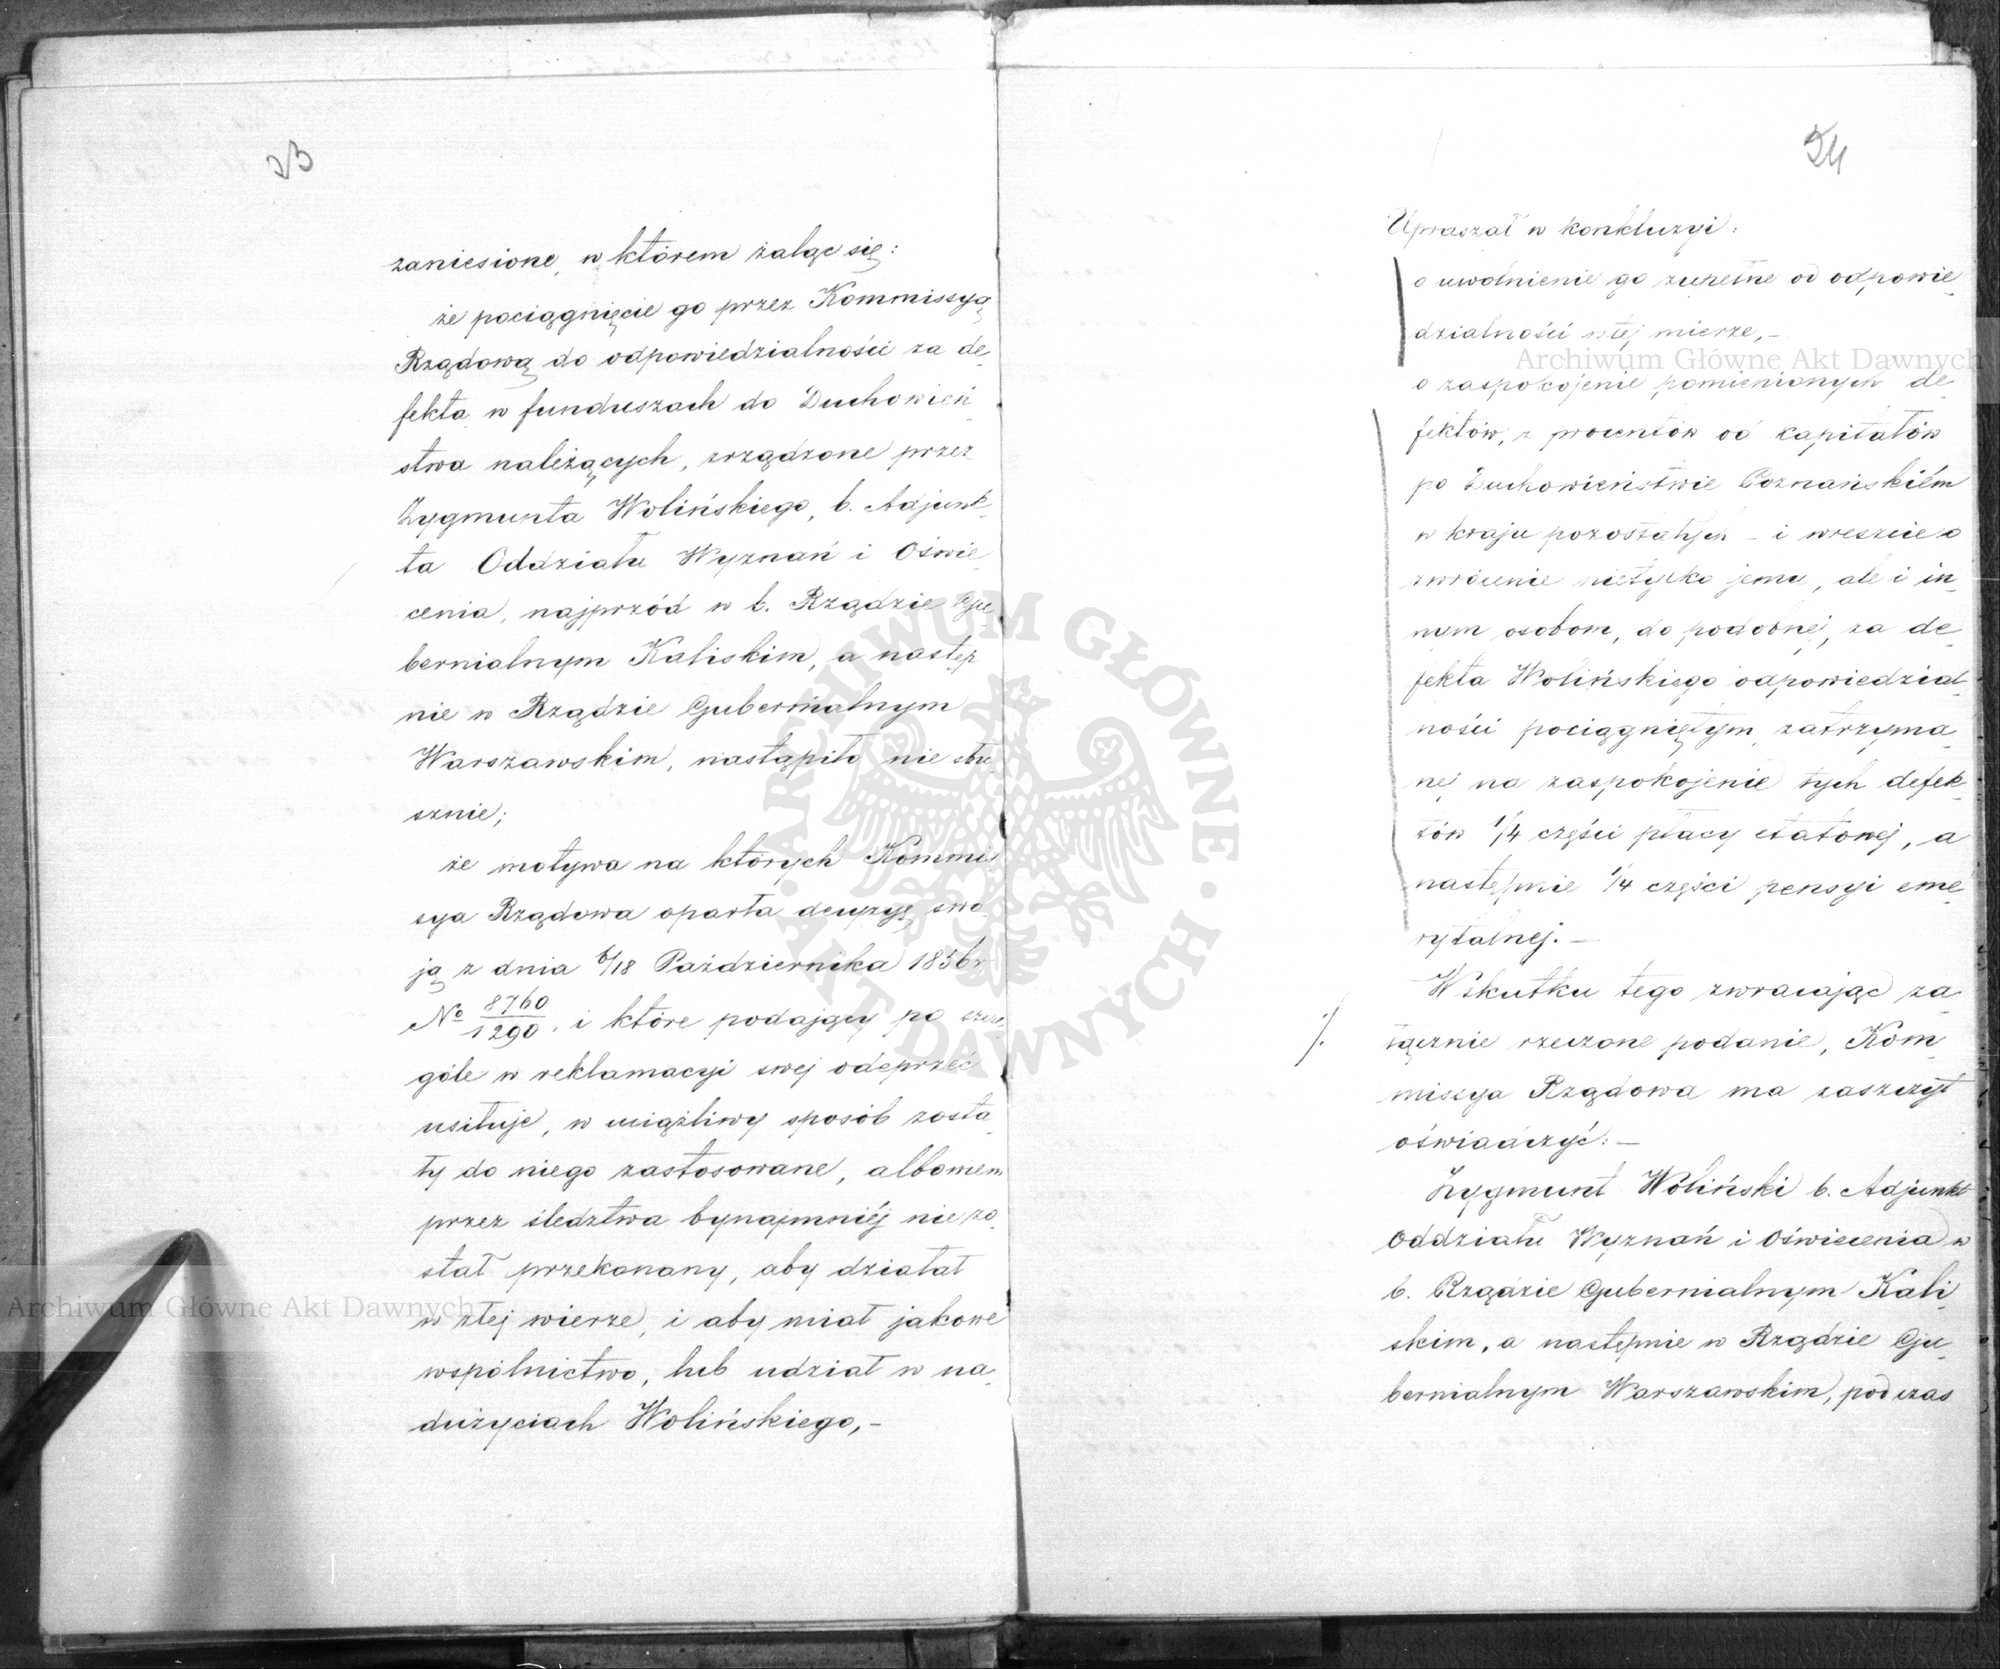 23
zaniesione, w którem żaląc się:
że pociągnięcie go przez Kommissyą
Rządową do odpowiedzialności za de-
fekta w funduszach do Duchowień-
stwa należących, zrządzone przez
Zygmunta Wolińskiego, b. Adjunk-
ta Oddziału Wyznań i Oświe-
cenia, najprzód w b. Rządzie Gu-
bernialnym Kaliskim, a następ-
nie w Rządzie Gubernialnym
Warszawskim, nastąpiło nie słu-
sznie;
że motywa na których Kommis-
sya Rządowa oparła decyzyę swo-
ją z dnia 6/18 Października 1856 r
No 8760/1290, i które podający po szcze-
góle w reklamacyi swej odeprzeć
usiłuje, w uciążliwy sposób zosta-
ły do niego zastosowane, albowiem
przez śledztwa bynajmniéj nie zo-
stał przekonany, aby działał
w złej wierze, i aby miał jakowe
wspólnictwo, lub udział w na-
dużyciach Wolińskiego,-
24
Upraszał w konkluzyi:
o uwolnienie go zupełne od odpowie-
dzialności w tej mierze,-
o zaspokojenie pomienionych de-
fektów, z procentów od kapitałów
po Duchowieństwie Poznańskiém
w kraju pozostałych - i wreszcie o
zwrócenie nietylko jemu, ale i in-
nym osobom, do podobnej, za de-
fekta Wolińskiego odpowiedzial-
ności pociągniętym, zatrzyma-
nej na zaspokojenie tych defek-
tów 1/4 części płacy etatowej, a
następnie 1/4 części pensyi eme-
rytalnej.-
Wskutku tego zwracając za-
łącznie rzeczone podanie, Kom-
missya Rządowa ma zaszczyt
oświadczyć:-
Zygmunt Woliński b. Adjunkt
Oddziału Wyznań i Oświecenia w
b. Rządzie Gubernialnym Kali-
skim, a następnie w Rządzie Gu-
bernialnym Warszawskim, podczas
Archiwum Główne Akt Dawnych
Archiwum Główne Akt Dawnych
ARCHIWUM GŁÓWNE · AKT DAWNYCH ·